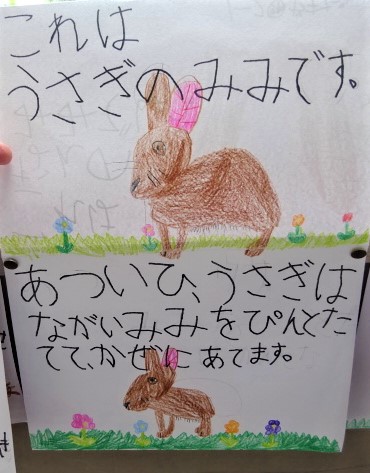 これは
うさぎのみみです。
あついひ、うさぎは
ながいみみをぴんとた
てて、かぜにあてます。